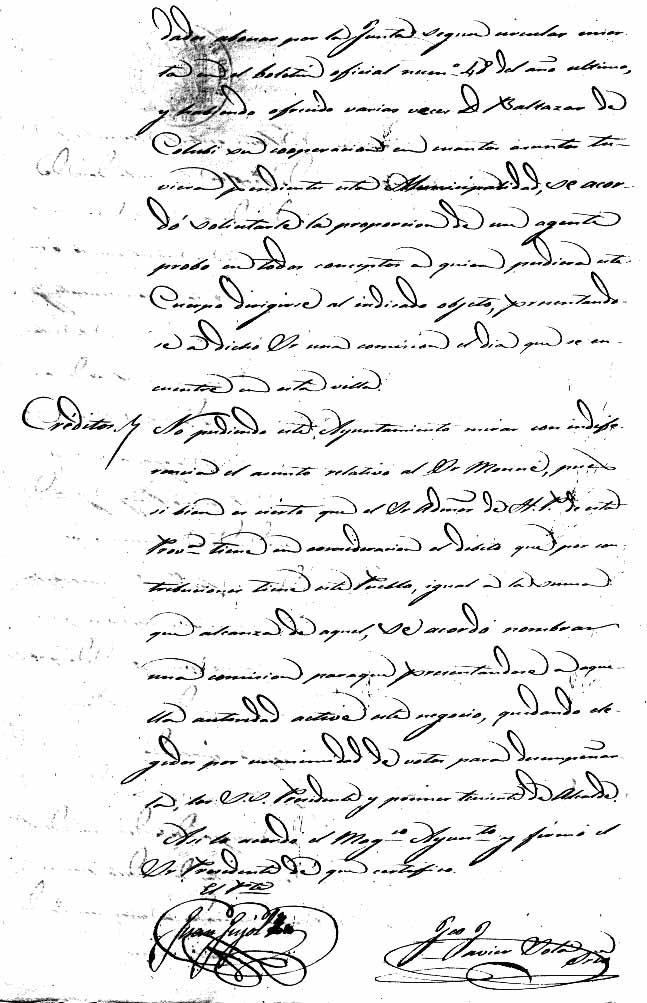 dados abonar por la Junta segun circular incer-
ta en el boletin oficial num.º 48 del año ultimo,
y habiendo ofrecido varias veces D. Baltazar de
su cooperacion en cuantos asuntos tu-
viera pendientes esta Municipalidad, se acor-
dó solicitarle la proporcion de un agente
probo en todos conceptos a quien pudiera este
Cuerpo dirigirse al indicado objeto, presentando-
se a dicho Sr una comision el dia que se en-
cuentre en esta villa.
Créditos. No pudiendo este Ayuntamiento mirar con indife-
rencia el asunto relativo al Sr, pues
si bien es cierto que el Sr Admor de H. P. de esta
Prov.ª tiene en consideracion el debito que por con-
tribuciones tiene este Pueblo, igual a la suma
que alcanza de aquel, se acordó nombrar
una comision para que presentandose a aque-
lla autoridad active este negocio, quedando ele-
gidos por unanimidad de votos para desempeñar-
la, los S.S. Presidente y primer teniente de Alcalde.
Asi lo acordó el Mag.co Ayunt.to y firmó el
Sr Presidente de que certifico.
El Pte
Juan Pujol
Fco Javier
Srio